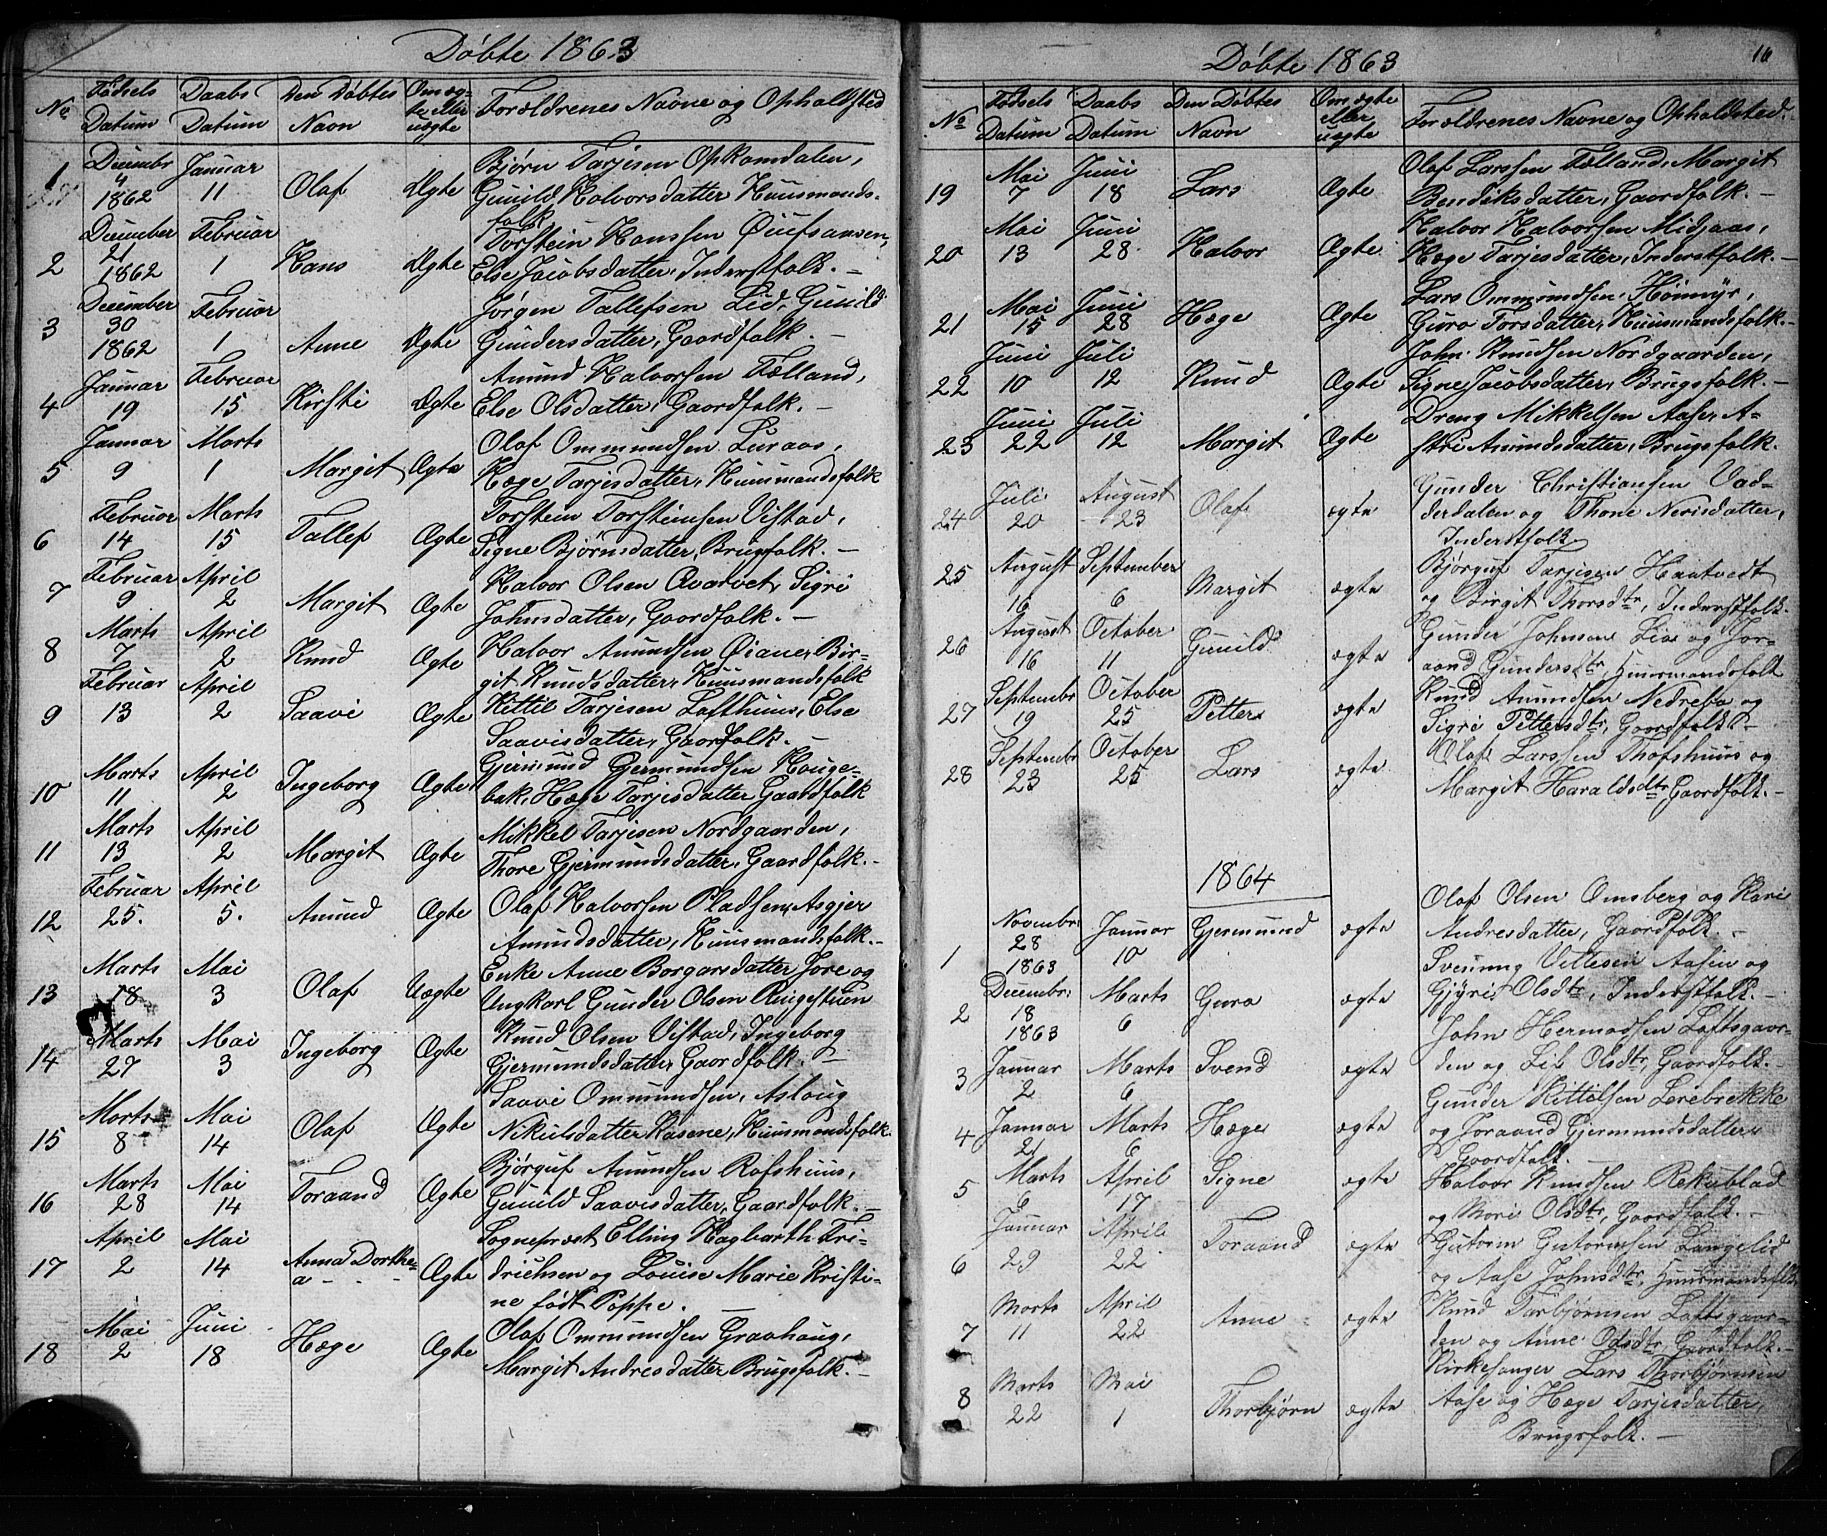 Døbte 1863
No Fødsels Datum Daabs Datum Den Døbtes Navn Om ægte eller uægte Forældrenes Navne og Opholdsted
1 Decembr 4 1862 Januar 11 Olaf Ægte Bjørn Tarjesen Opkomdalen,
Gunild Halvorsdatter, Huusmands-
folk
2 December 21 1862 Februar 1 Hans Ægte Torstein Hanssen
Else Jacobsdatter, Inderstfolk. –
3 December 30 1862 Februar 1 Anne Ægte Jørgen Tallefsen Lid, Gunild
Gundersdatter, Gaardfolk. –
4 Januar 19 Februar 15 Kirsti Ægte Amund Halvorsen Fælland,
Else Olsdatter, Gaardfolk. –
5 Januar 9 Marts 1 Margit Ægte Olaf Ommundsen Luraas,
Hæge Tarjesdatter, Huusmandsfolk
6 Februar 14 Marts 15 Tallef Ægte Torstein Torsteinsen Vistad,
Signe Bjørnsdatter, Brugsfolk. –
7 Februar 9 April 2 Margit Ægte Halvor Olsen Qvarvet, Sigri
Johnsdatter, Gaardfolk. –
8 Marts 7 April 2 Knud Ægte Halvor Amundsen Øiane, Bir-
git Knudsdatter, Huusmandsfolk
9 Februar 13 April 2 Saavi Ægte Kittil Tarjesen Lofthuus, Else
Saavisdatter, Gaardfolk. –
10 Marts 11 April 2 Ingeborg Ægte Gjermund Gjermundsen Houge-
bak, Hæge Tarjesdatter Gaardfolk
11 Marts 13 April 2 Margit Ægte Mikkel Tarjesen Nordgaarden,
Thore Gjermundsdatter, Gaardfolk. –
12 Februar 25. April 5. Amund Ægte Olaf Halvorsen Pladsen, Asgjer
Amundsdatter, Huusmandsfolk. –
13 Marts 18 Mai 3 Olaf Uægte Enke Anne Borgarsdatter Jore og
Ungkarl Gunder Olsen Ringestuen
14 Marts 27 Mai 3 Ingeborg Ægte Knud Olsen Vistad, Ingeborg
Gjermundsdatter, Gaardfolk. –
15 Marts 8 Mai 14 Olaf Ægte Saavi Ommundsen, Aslaug
Nikulsdatter Kasene, Huusmandsfolk.
16 Marts 28 Mai 14 Toraand Ægte Bjørguf Amundsen Rofshuus,
Gunild Saavisdatter, Gaardfolk. –
17 April 2 Mai 14 Anna Dorthe-
a Ægte Sognepræst Elling Hagbarth Fri-
drichsen og Louise Marie Kristi-
ne født Poppe. –
18 Mai 2 Juni 18 Hæge Ægte Olaf Ommundsen Graahaug,
Margit Andresdatter Brugsfolk. –
Døbte 1863
16
No Fødsels Datum Daabs Datum Den Døbtes Navn Om ægte eller uægte Forældrenes Navne og Opholdsted.
19 Mai 7 Juni 18 Lars Ægte Olaf Larssen Fælland, Margit
Bendiksdatter, Gaardfolk. –
20 Mai 13 Juni 28 Halvor Ægte Halvor Halvorsen Midjaas,
Hæge Tarjesdatter, Inderstfolk. –
21 Mai 15 Juni 28 Hæge Ægte Lars Ommundsen, Hømyr,
Guro Torsdatter, Huusmandsfolk. –
22 Juni 10 Juli 12 Knud Ægte John Knudsen Nordgaarden,
Signe Jacobsdatter, Brugsfolk. –
23 Juni 22 Juli 12 Margit Ægte Dreng Mikkelsen Aase, A-
stri Amundsdatter, Brugsfolk.
24 Juli 20 August 23 Olaf ægte Gunder Christiansen Vad-
derdalen og Thone Nerisdatter,
Inderstfolk
25 August 16 September 6 Margit ægte Bjørguf Tarjesen Haatvedt
og Birgit Thorsdtr, Inderstfolk.
26 August 16 October 11 Gunild ægte Gunder Johnsen Lie og Jor-
aand Gundersdtr, Huusmandsfolk
27 Septembr 19 October 25 Petter ægte Knud Amundsen Nedrebø og
Sigri Pettersdtr, Gaardfolk –
28 Septembr 23 October 25 Lars ægte Olaf Larssen Rofshuus og
Margit Haraldsdtr, Gaardfolk. –
1864
1 Novembr: 28 1863 Januar 10 Gjermund ægte Olaf Olsen Omsberg og Kari
Andresdatter, Gaardfolk. –
2 Decembr: 18 1863 Marts 6 Guro ægte Svenung Vettesen Aasen og
Gjyri Olsdtr, Inderstfolk. –
3 Januar 2 Marts 6 Svend ægte John Hermodsen Loftsgaar-
den og Liv Olsdtr, Gaardfolk. –
4 Januar 21 Marts 6 Hæge ægte Gunder Kittilsen Lerebrække
og Joraand Gjermundsdatter,
Gaardfolk. –
5 Marts 6 April 17 Signe ægte Halvor Knudsen Rekublad
og Mari Olsdtr, Gaardfolk. –
6 Januar 29 April 22 Toraand ægte Gutorm Gutormsen Langelid
og Aase Johnsdtr, Huusmandsfolk
7 Marts 11 April 22 Anne ægte Knud Tarbjørnsen Loftsgaar-
den og Anne Olsdtr, Gaardfolk. –
8 Marts 22 Mai 1 Thorbjørn ægte Kirkesanger Lars Thorbjørnsen
Aase og Hæge Tarjesdatter,
Brugsfolk. –